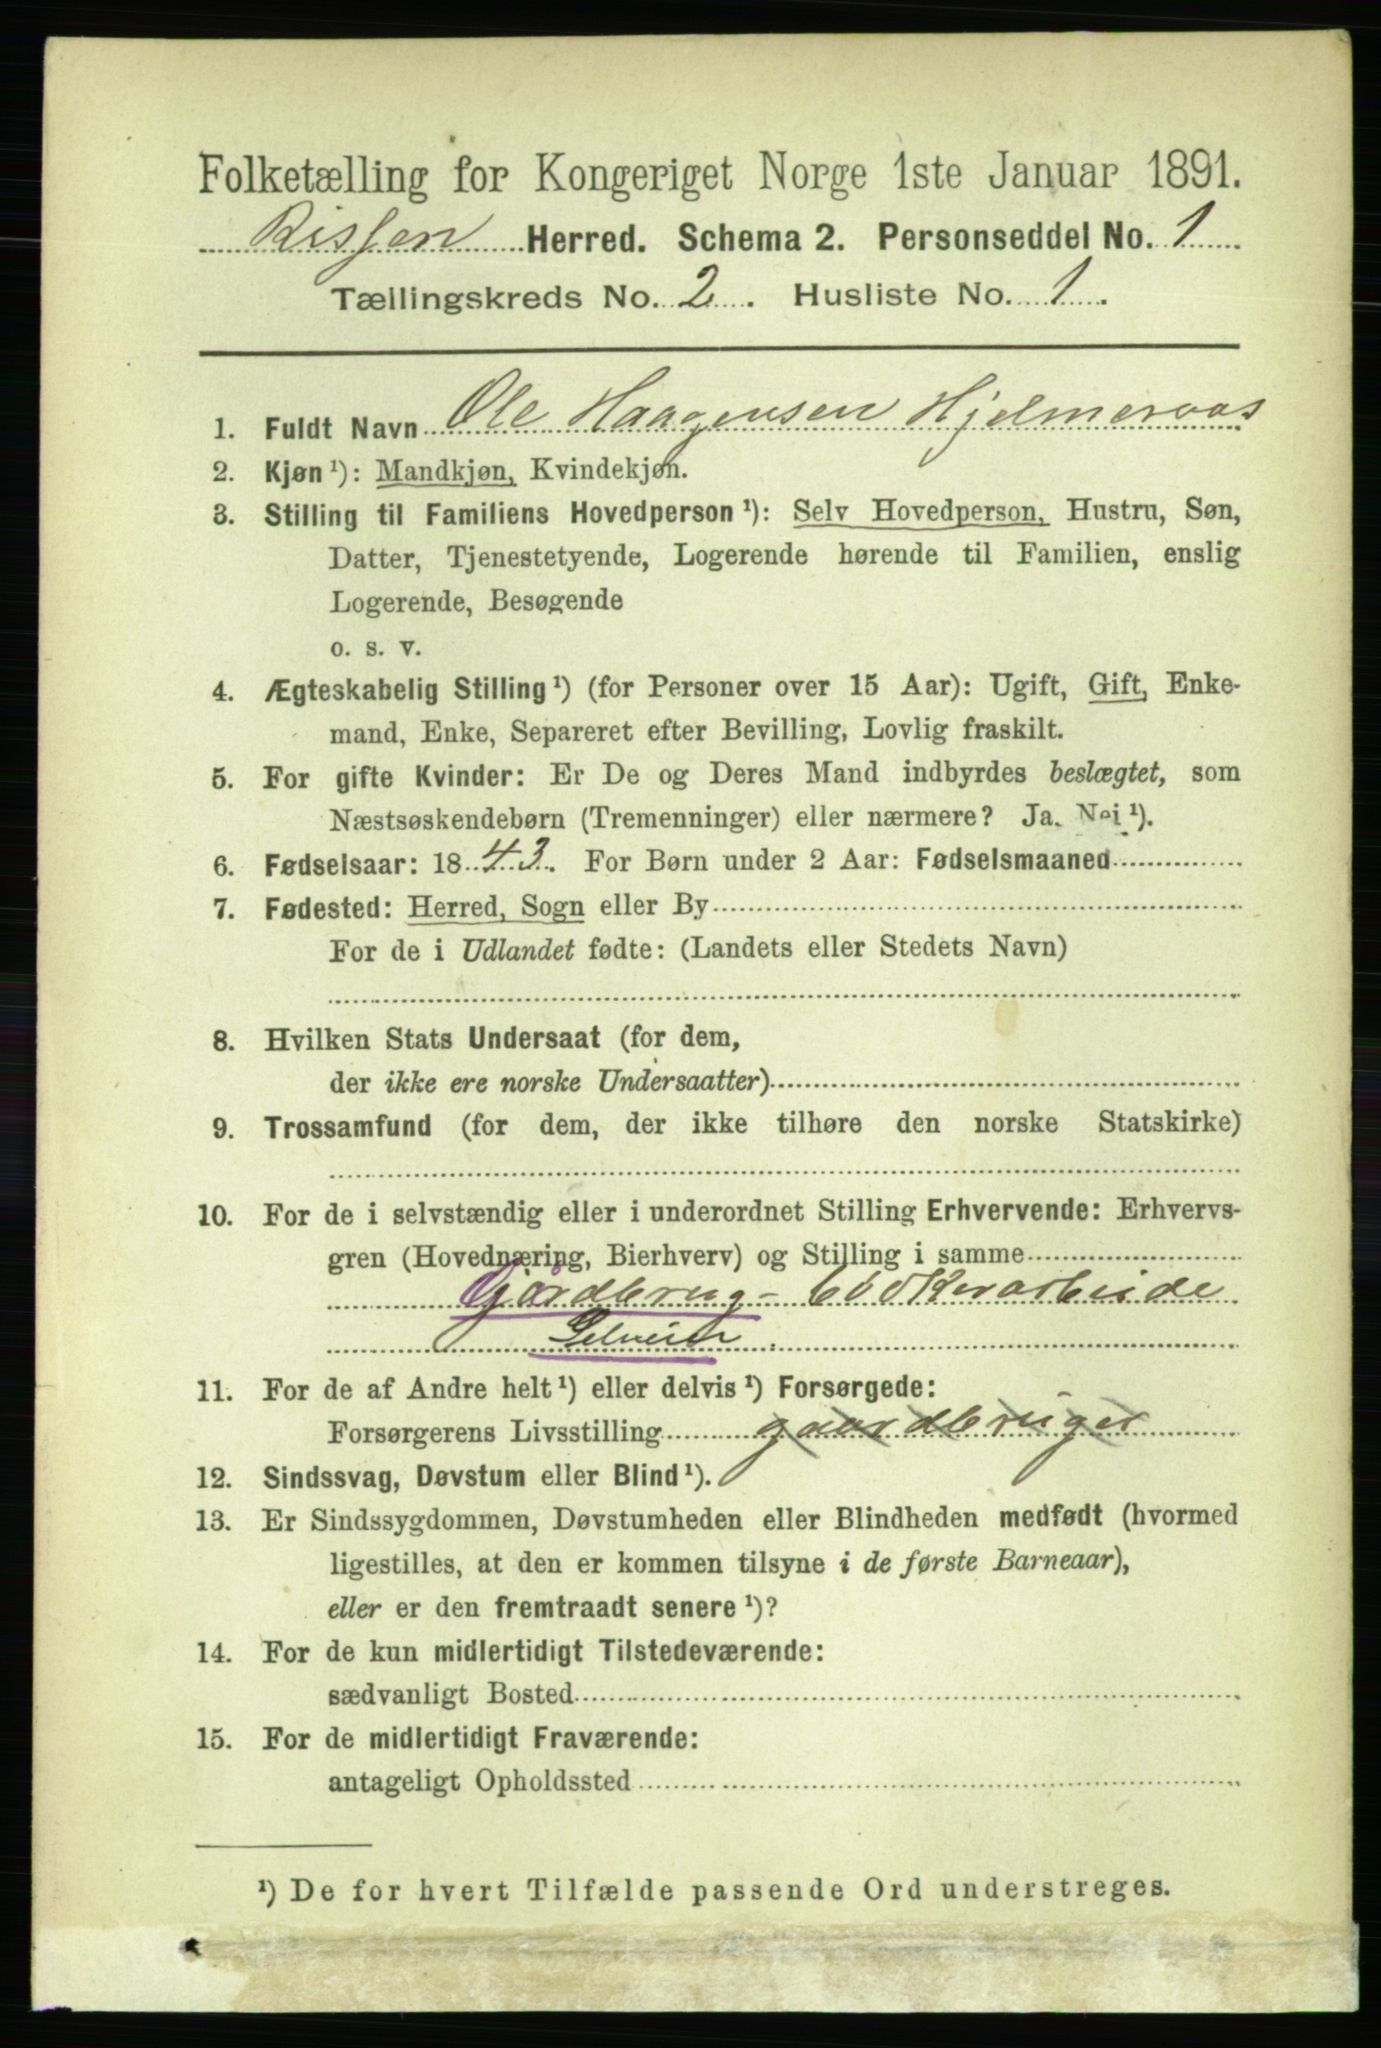 Folketælling for Kongeriget Norge 1ste Januar 1891.
Rissen Herred. Schema 2. Personseddel No. 1
Tællingskreds No. 2. Husliste No. 1.
1. Fuldt Navn Ole Haagensen Hjelmeraas
2. Kjøn ¹): Mandkjøn, Kvindekjøn.
3. Stilling til Familiens Hovedperson ¹): Selv Hovedperson, Hustru, Søn,
Datter, Tjenestetyende, Logerende hørende til Familien, enslig
Logerende, Besøgende
o. s. v.
4. Ægteskabelig Stilling ¹) (for Personer over 15 Aar): Ugift, Gift, Enke-
mand, Enke, Separeret efter Bevilling, Lovlig fraskilt.
5. For gifte Kvinder: Er De og Deres Mand indbyrdes beslægtet, som
Næstsøskendebørn (Tremenninger) eller nærmere? Ja. Nei ¹).
6. Fødselsaar: 1843. For Børn under 2 Aar: Fødselsmaaned
7. Fødested: Herred, Sogn eller By
For de i Udlandet fødte: (Landets eller Stedets Navn)
8. Hvilken Stats Undersaat (for dem,
der ikke ere norske Undersaatter)
9. Trossamfund (for dem, der ikke tilhøre den norske Statskirke)
10. For de i selvstændig eller i underordnet Stilling Erhvervende: Erhvervs-
gren (Hovednæring, Bierhverv) og Stilling i samme
Gjordbrug-
Selveier
11. For de af Andre helt ¹) eller delvis ¹) Forsørgede:
Forsørgerens Livsstilling gaardbruger
12. Sindssvag, Døvstum eller Blind ¹).
13. Er Sindssygdommen, Døvstumheden eller Blindheden medfødt (hvormed
ligestilles, at den er kommen tilsyne i de første Barneaar),
eller er den fremtraadt senere ¹)?
14. For de kun midlertidigt Tilstedeværende:
sædvanligt Bosted
15. For de midlertidigt Fraværende:
antageligt Opholdssted
¹) De for hvert Tilfælde passende Ord understreges.